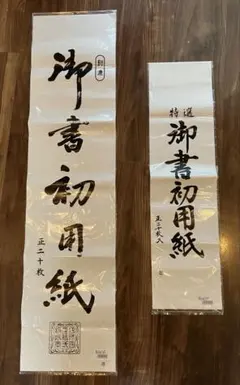 御書初用紙
正二十枚
特選
御書初用紙
正二十枚入